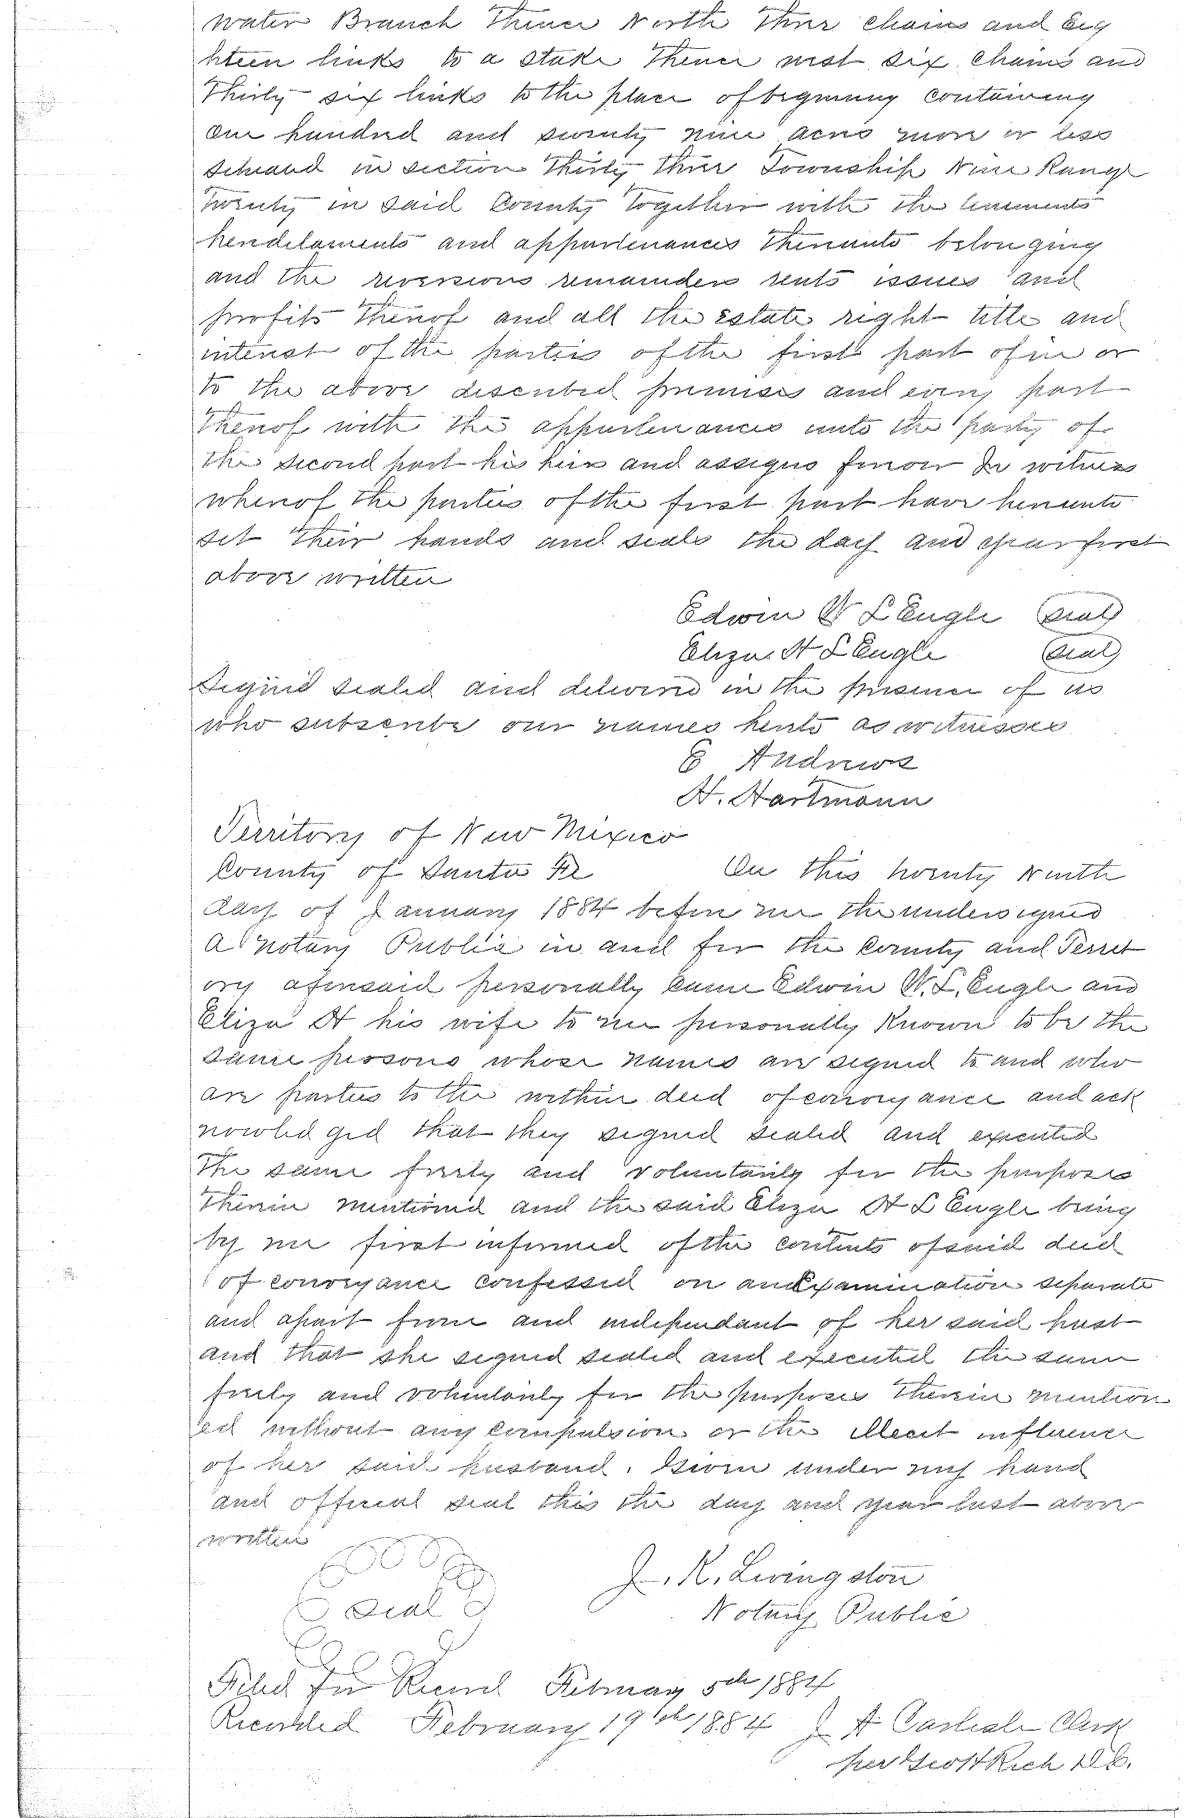 water Branch Thence North Three chains and Eig
hteen links to a stake Thence west six chains and
Thirty six links to the place of beginning containing
One hundred and seventy nine acres more or less
situated in section Thirty three Township Nine Range
Twenty in said County Together with the tenements
hereditaments and appurtenances thereunto belonging
and the reversions remainders rents issues and
profits thereof and all the estate right title and
interest of the parties of the first part of in or
to the above described premises and every part
thereof with the appurtenances unto the party of
the second part his heirs and assigns forever In witness
whereof the parties of the first part have hereunto
set their hands and seals the day and year first
above written
Edwin W L'Engle (seal)
Eliza H L'Engle (seal)
Signed sealed and delivered in the presence of us
who subscribe our names hereto as witnesses
E Andrews
H. Hartmann
Territory of New Mexico
County of Santa Fe On this twenty Ninth
day of January 1884 before me the undersigned
a Notary Public in and for the County and Territ
ory aforesaid personally came Edwin W. L. Engle and
Eliza H his wife to me personally Known to be the
same persons whose names are signed to and who
are parties to the within deed of conveyance and ack
nowledged that they signed sealed and executed
the same freely and voluntarily for the purposes
therein mentioned and the said Eliza H L'Engle being
by me first informed of the contents of said deed
of conveyance confessed on and Examination separate
and apart from and independant of her said hust
and that she signed sealed and executed the same
freely and voluntarily for the purposes therein mention
ed without any compulsion or the illecit influence
of her said husband. Given under my hand
and official seal this the day and year last above
written
J. R. Livingston
seal Notary Public
Filed for Record February 5th 1884
Recorded February 19th 1884 J A Carlisle Clerk
per Geo H Rich D.C.